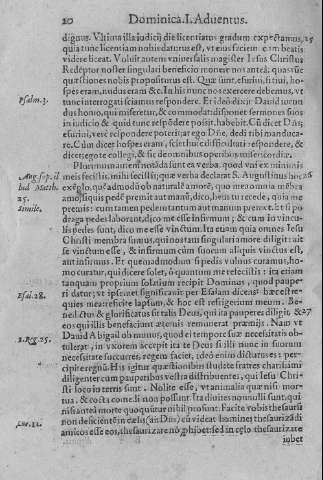 20 Dominica.I. Aduentus.
dignus. Vltima illa iudicij die licentiatus gradum expectamus, 25
quia tunc licentiam nobis daturus est, vt eius faciem cum beatis
videre liceat. Voluit autem vniuersalis magister Iesus Christus
Redẽptor noster singulari beneficio monere nos antea; quas
quæstiones nobis propositurus est. Quæ sunt, esuriui, sitiui, hos-
pes eram, nudus eram &c. In his nunc nos exercere debemus, vt
Psalm. tunc interrogati sciamus respondere. Et ideò dixit Dauid iucun
dus homo, qui miseretur, & commodat disponet sermones suos
in iudicio & quid tunc respõdere possit, habebit. Cũ dicet Dñs;
esuriui, verè respondere poterit; at ego Dñe, dedi tibi manduca-
re. Cùm dicet hospes eram, respondere, &
dicet; ego te collegi, & sic de omnibus operibus misericordiæ.
Plurimum autem notãda sunt ea verba. quod vni ex minimis
Aug. meis fecistis, mihi fecistis; quæ verba declarat S. Augustinus hoc 26
Matth. exẽplo. quẽ admodũ ob naturalẽ amorẽ, quo mea omnia mẽbra
25. amo, si quis pedẽ premit aut manũ, dico, hem tu recede, quia me
simile. premis: cum tamen pedem tantum aut manum premat. & si po
draga pedes laborant, dico me esse infirmum; & cum in vincu-
lis pedes sunt, dico me esse vinctum. Ita etiam quia omnes Iesu
Christi membra sumus, qui nos tam singulari amore diligit: ait
se vinctum esse, & infirmum cùm suorum aliquis vinctus est,
aut infirmus. Et quemadmodum si pedis vulnus curamus, ho-
mo curatur, qui dicere solet, ò quantum me refecistis: ita etiam
tanquam proprium solatium recipit Dominus, quod paupe-
Esai. 28. ri datur; vt ipsemet significauit per Esaiam dicens: hæc est re-
quies mea reficite lapsum, & hoc est refrigerium meum. Be-
nedictus & glorificatus sit talis Deus, qui ita pauperes diligit, & 27
eos qui illis benefaciunt æternis remunerat præmijs. Nam vt
Dauid Abigail ob munus, quod ei tempore suæ necessitatis ob-
1. Reg. 25. tulerat, in vxorem accepit ita te Deus si illi nunc in suorum
necessitate succurres, regem faciet, ideò enim dicturus es: per-
cipite regnũ. His igitur quæstionibus studete fratres charissimi
diligenter cum pauperibus vestra distribuentes, qui Iesu Chri
sti loco in terris sunt. Nolite esse, vt animalia quæ nisi mor-
tua, & cocta comedi non possunt. Ita diuites nonnulli sunt, qui
nisi antea morte quoquitur nihil prosunt. Facite vobis thesaurũ
Luc. 12. non deficientẽ in cælis (ait Dñs) cũ videat homines thesauri di
amicos esse eos, thesaurizare nõ ꝓhibet: sed in cælo thesaurizare
iubet